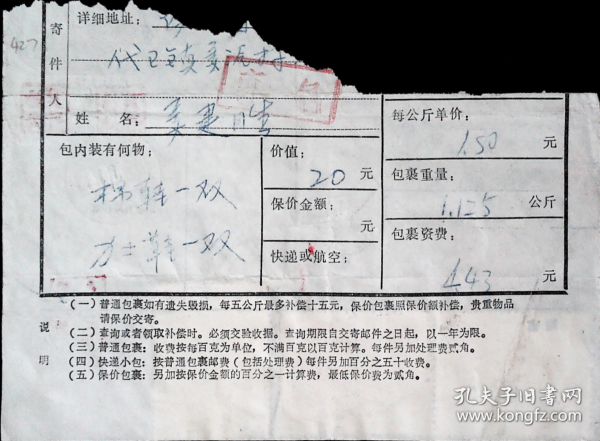 427
寄件人
详细地址：
代卫镇姜汜村
姓 名：
姜建胜
包内装有何物：
棉鞋一双
力士鞋一双
价值：
20 元
保价金额：
元
快递或航空：
每公斤单价：
1.50 元
包裹重量：
1.125 公斤
包裹资费：
4.43 元
说明
（一）普通包裹如有遗失毁损，每五公斤最多补偿十五元，保价包裹照保价额补偿，贵重物品
请保价交寄。
（二）查询或者领取补偿时。必须交验收据。查询期限自交寄邮件之日起，以一年为限。
（三）普通包裹：收费按每百克为单位，不满百克以百克计算。每件另加处理费贰角。
（四）快递小包：按普通包裹邮费（包括处理费）每件另加百分之五十收费。
（五）保价包裹：另加按保价金额的百分之一计算费，最低保价费为贰角。
孔夫子旧书网
www.kongfz.com